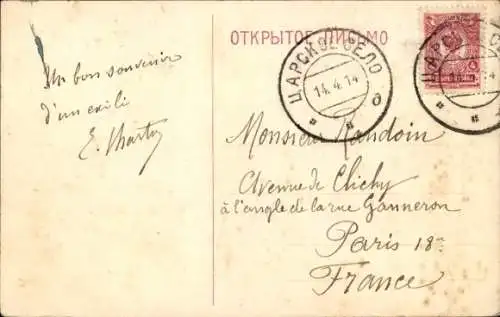 ОТКРЫТОЕ ПИСЬМО
Un bon souvenir
d'un exilé
E.
ЦАРСКОЕ СЕЛО
14.4.14
д
ЦАРСКО
4
Monsieur Naudoin
Avenue de Clichy
à l'angle de la rue Ganneron
Paris 18e
France